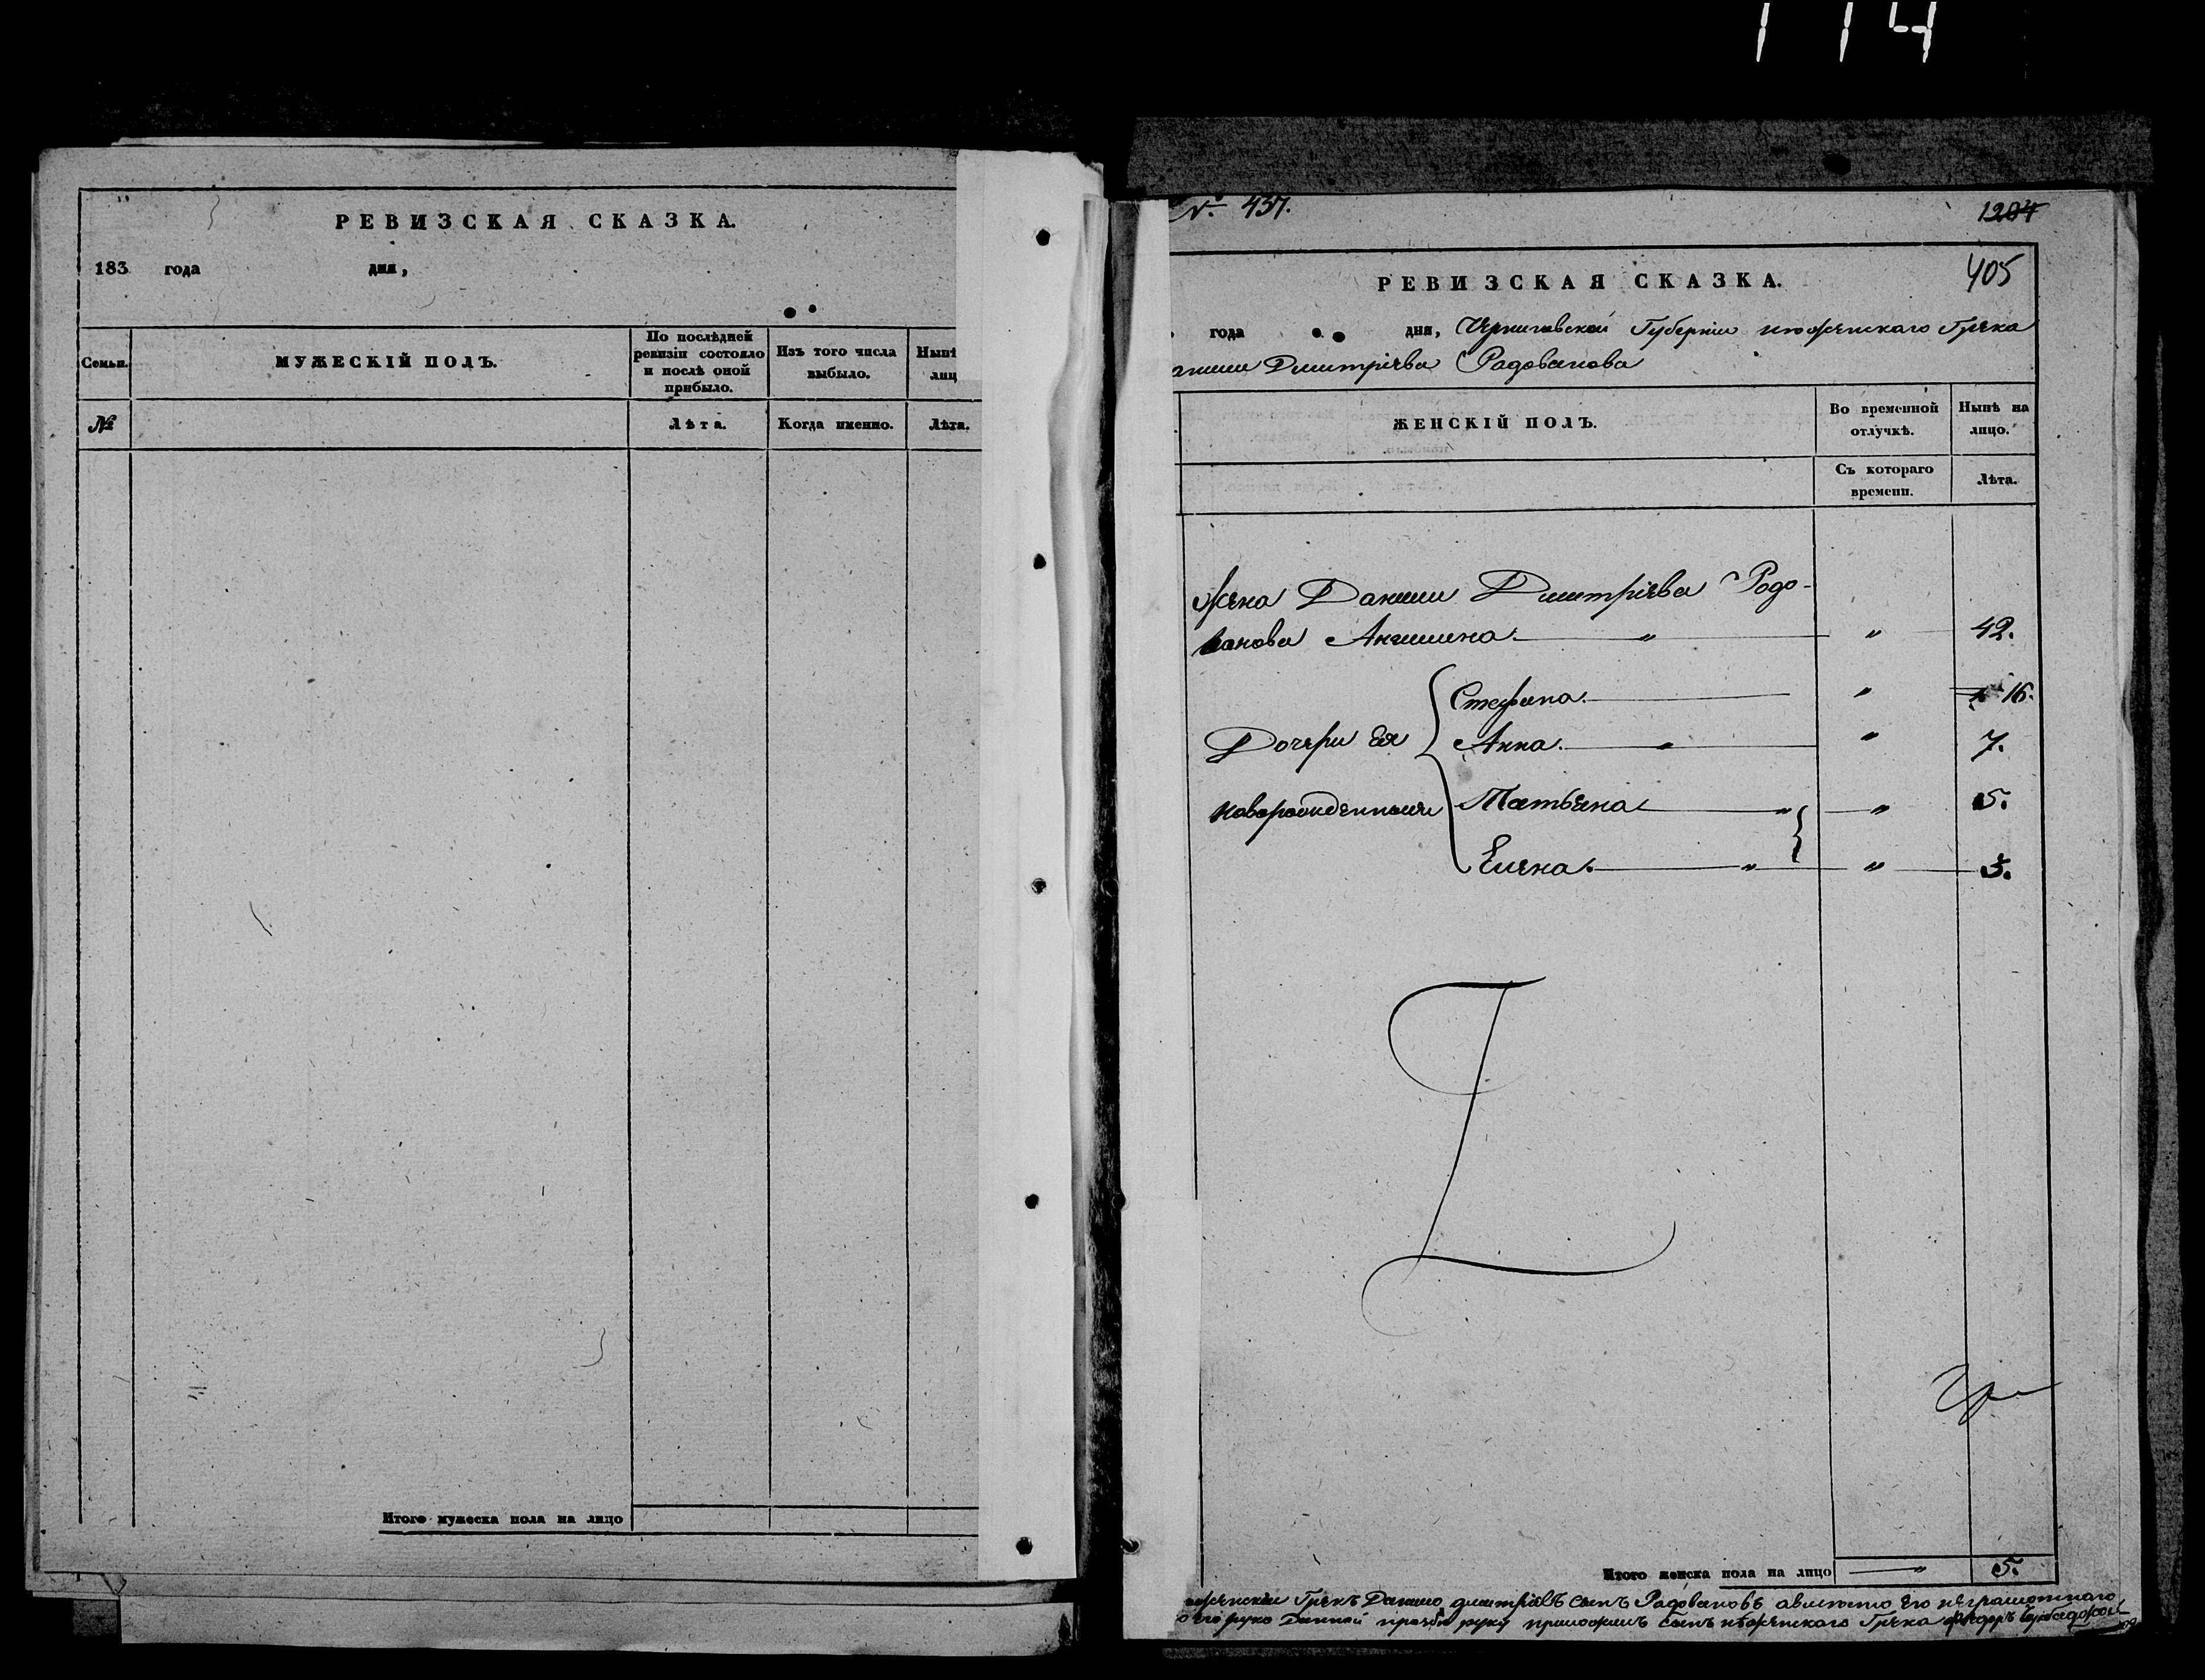 114
РЕВИЗСКАЯ СКАЗКА.
183 года дня,
Семьи.
МУЖЕСКІЙ ПОЛЪ.
По послѣдней ревизіи состояло и послѣ оной прибыло.
Изъ того числа выбыло.
Нынѣ лиц
№
Лѣта.
Когда именно.
Лѣта.
Итого мужеска пола на лицо
№. 437.
1204
405
РЕВИЗСКАЯ СКАЗКА.
года дня, Черниговской Губерніи нѣженскаго Грека
Данили Дмитріева Радованова
ЖЕНСКІЙ ПОЛЪ.
Во временной отлучкѣ.
Нынѣ на лицо.
Съ котораго времени.
Лѣта.
Жена Данили Дмитріева Радо-
ванова Акилина. " " 42.
Стефана. " 16.
Дочери Ея Анна. " " 7.
новорожденныи Татьяна " " 5.
Елена. " " 3.
Итого женска пола на лицо " 5.
нѣженскій Грекъ Данило дмитріевъ сынъ Радовановъ авместо Его неграмотного
по его руко Данной прозбѣ руку приложилъ сынъ нѣженскаго Грека